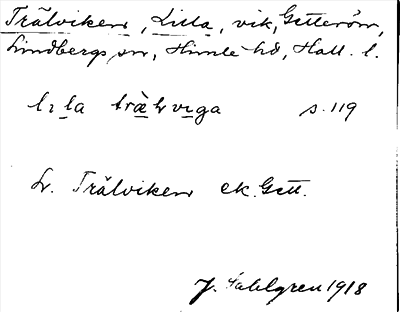 Trälviken, Lilla, vik, Getterön,
Lindbergs sn, Himle hd, Hall. l.
lıla trälvıga s. 119
Lv. Trälviken ek. Gett.
J. Sahlgren 1918